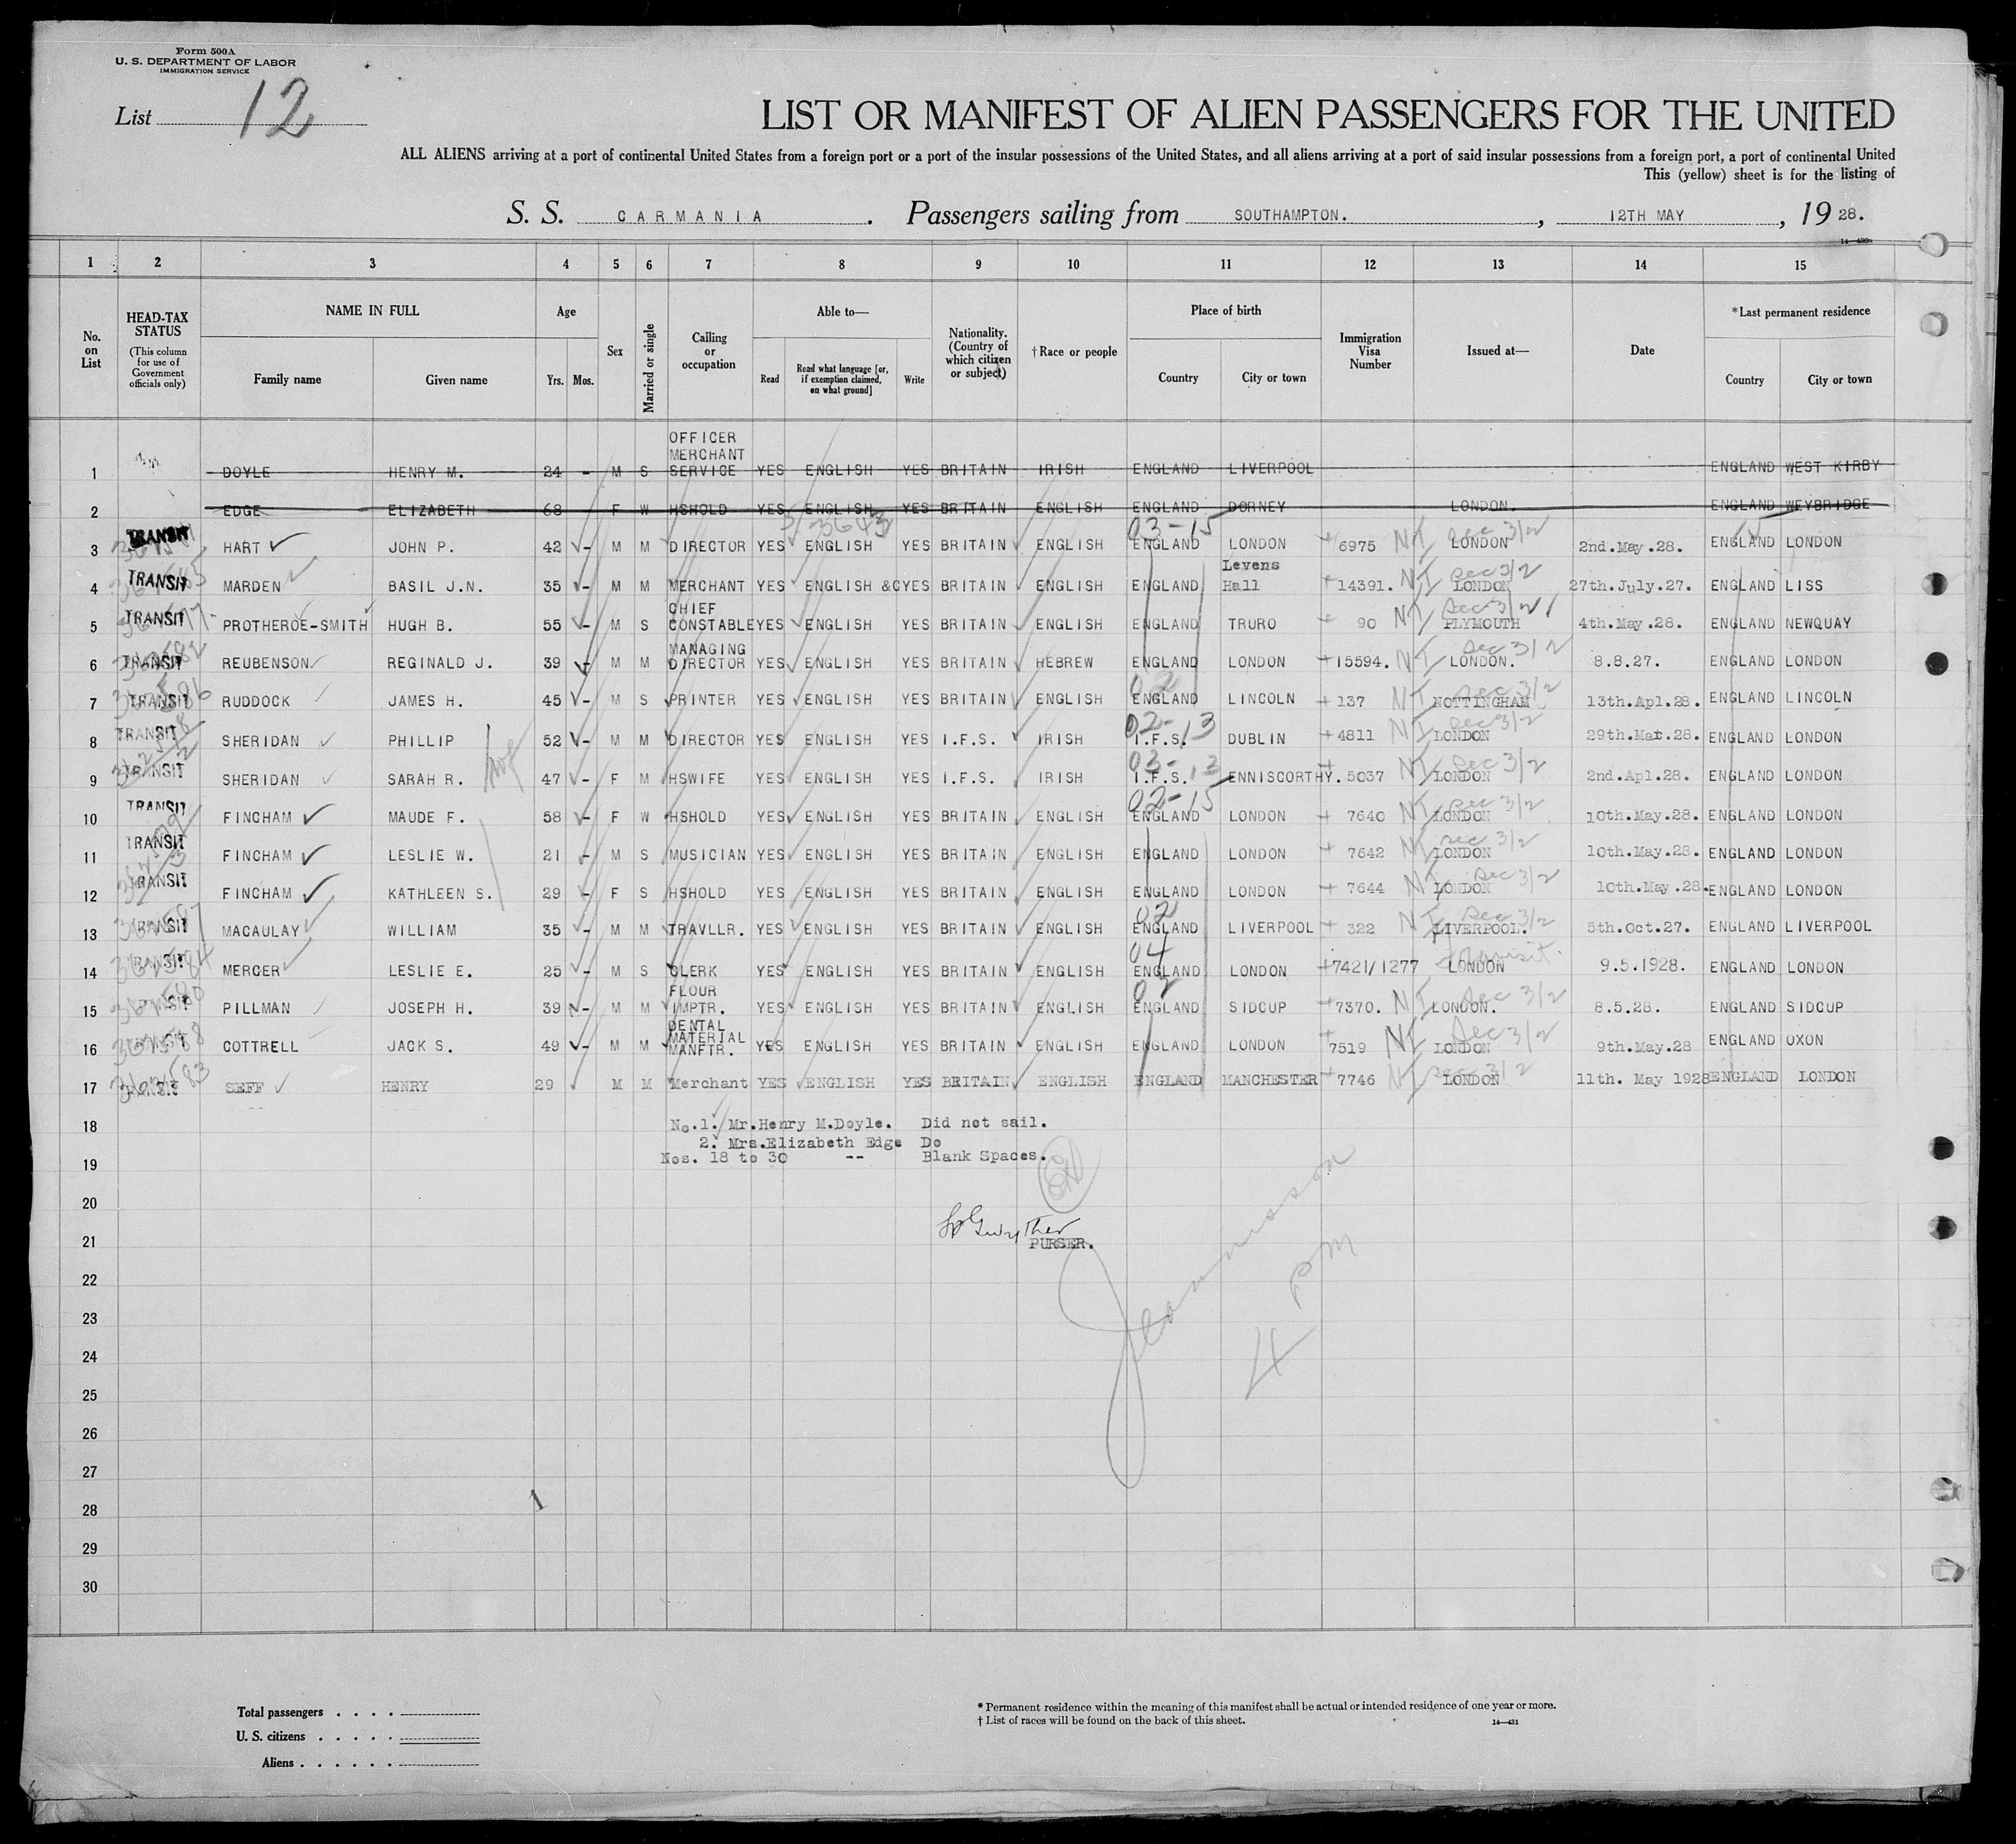 Form 500A
U. S. DEPARTMENT OF LABOR
IMMIGRATION SERVICE
List 12
LIST OR MANIFEST OF ALIEN PASSENGERS FOR THE UNITED
ALL ALIENS arriving at a port of continental United States from a foreign port or a port of the insular possessions of the United States, and all aliens arriving at a port of said insular possessions from a foreign port, a port of continental United
This (yellow) sheet is for the listing of
S. S. CARMANIA. Passengers sailing from SOUTHAMPTON., 12TH MAY, 1928.
1 2 3 4 5 6 7 8 9 10 11 12 13 14 15
No. on List
HEAD-TAX STATUS (This column for use of Government officials only)
NAME IN FULL
Family name Given name
Age Yrs. Mos.
Sex
Married or single
Calling or occupation
Able to—
Read Read what language [or, if exemption claimed, on what ground] Write
Nationality. (Country of which citizen or subject)
† Race or people
Place of birth
Country City or town
Immigration Visa Number
Issued at—
Date
*Last permanent residence
Country City or town
1 DOYLE HENRY M. 24 - M S OFFICER MERCHANT SERVICE YES ENGLISH YES BRITAIN IRISH ENGLAND LIVERPOOL ENGLAND WEST KIRBY
2 EDGE ELIZABETH 68 F W HSHOLD YES ENGLISH YES BRITAIN ENGLISH ENGLAND DORNEY LONDON. ENGLAND WEYBRIDGE
3 TRANSIT HART JOHN P. 42 - M M DIRECTOR YES ENGLISH YES BRITAIN ENGLISH 03-15 ENGLAND LONDON 6975 NI LONDON Sec 3/2 2nd.May.28. ENGLAND LONDON
4 TRANSIT MARDEN BASIL J.N. 35 - M M MERCHANT YES ENGLISH &C YES BRITAIN ENGLISH ENGLAND Levens Hall 14391. NI LONDON Sec 3/2 27th.July.27. ENGLAND LISS
5 TRANSIT PROTHEROE-SMITH HUGH B. 55 - M S CHIEF CONSTABLE YES ENGLISH YES BRITAIN ENGLISH ENGLAND TRURO 90 NI PLYMOUTH Sec 3/2 4th.May.28. ENGLAND NEWQUAY
6 TRANSIT REUBENSON REGINALD J. 39 - M M MANAGING DIRECTOR YES ENGLISH YES BRITAIN HEBREW ENGLAND LONDON 15594. NI LONDON. Sec 3/2 8.8.27. ENGLAND LONDON
7 TRANSIT RUDDOCK JAMES H. 45 - M S PRINTER YES ENGLISH YES BRITAIN ENGLISH ENGLAND LINCOLN 137 NI NOTTINGHAM Sec 3/2 13th.Apl.28. ENGLAND LINCOLN
8 TRANSIT SHERIDAN PHILLIP 52 - M M DIRECTOR YES ENGLISH YES I.F.S. IRISH 02-13 I.F.S. DUBLIN 4811 NI LONDON Sec 3/2 29th.Mar.28. ENGLAND LONDON
9 TRANSIT SHERIDAN SARAH R. 47 - F M HSWIFE YES ENGLISH YES I.F.S. IRISH 03-13 I.F.S. ENNISCORTHY. 5037 NI LONDON Sec 3/2 2nd.Apl.28. ENGLAND LONDON
10 TRANSIT FINCHAM MAUDE F. 58 - F W HSHOLD YES ENGLISH YES BRITAIN ENGLISH 02-15 ENGLAND LONDON 7640 NI LONDON Sec 3/2 10th.May.28. ENGLAND LONDON
11 TRANSIT FINCHAM LESLIE W. 21 - M S MUSICIAN YES ENGLISH YES BRITAIN ENGLISH ENGLAND LONDON 7642 NI LONDON Sec 3/2 10th.May.28. ENGLAND LONDON
12 TRANSIT FINCHAM KATHLEEN S. 29 - F S HSHOLD YES ENGLISH YES BRITAIN ENGLISH ENGLAND LONDON 7644 NI LONDON Sec 3/2 10th.May.28. ENGLAND LONDON
13 TRANSIT MACAULAY WILLIAM 35 - M M TRAVLLR. YES ENGLISH YES BRITAIN ENGLISH 02 ENGLAND LIVERPOOL 322 NI LIVERPOOL. Sec 3/2 5th.Oct.27. ENGLAND LIVERPOOL
14 TRANSIT MERCER LESLIE E. 25 - M S CLERK YES ENGLISH YES BRITAIN ENGLISH 04 ENGLAND LONDON 7421/1277 LONDON Transit 9.5.1928. ENGLAND LONDON
15 PILLMAN JOSEPH H. 39 - M M FLOUR IMPTR. YES ENGLISH YES BRITAIN ENGLISH 02 ENGLAND SIDCUP 7370. NI LONDON. Sec 3/2 8.5.28. ENGLAND SIDCUP
16 COTTRELL JACK S. 49 - M M DENTAL MATERIAL MANFTR. YES ENGLISH YES BRITAIN ENGLISH ENGLAND LONDON 7519 NI LONDON Sec 3/2 9th.May.28 ENGLAND OXON
17 SEFF HENRY 29 M M Merchant YES ENGLISH YES BRITAIN ENGLISH ENGLAND MANCHESTER 7746 NI LONDON Sec 3/2 11th. May 1928 ENGLAND LONDON
18 No.1. Mr.Henry M.Doyle. Did not sail.
2. Mrs.Elizabeth Edge Do
19 Nos. 18 to 30 -- Blank Spaces.
20
21 PURSER.
22
23
24
25
26
27
28
29
30
4 PM
Total passengers
U. S. citizens
Aliens
* Permanent residence within the meaning of this manifest shall be actual or intended residence of one year or more.
† List of races will be found on the back of this sheet.
14—431